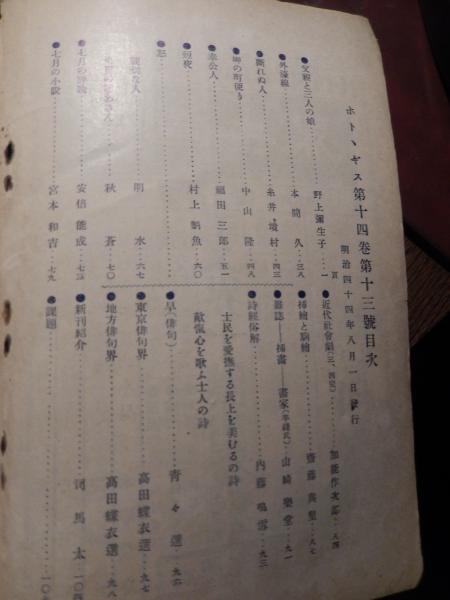 ホトヽギス第十四卷第十三號目次
明治四十四年八月一日發行
●父親と三人の娘…………野上彌生子…一
●外濠線…………本間久…三八
●斷れぬ人…………糸井墳村…四三
●岬の町便り…………中山隆…四八
●奉公人…………細田三郎…五一
●短夜…………村上鯛魚…六〇
明水…六七
秋蒼…七〇
●七月の評論…………安倍能成…七五
●七月の小說…………宮本和吉…七九
●近代社會劇(三、四完)…加能作次郎…八四
●挿繪と駒繪…………齋藤與里…八七
●雜誌――挿畫――畫家…山崎樂堂…九一
●詩經俗解…………內藤鳴雪…九三
士民を愛撫する長上を美むるの詩
敵愾心を歌ふ士人の詩
(俳句)…………靑々選…九六
●東京俳句界…………高田蝶衣選…九七
●地方俳句界…………高田蝶衣選…九八
●新刊紹介…………司馬太…
●課題…………